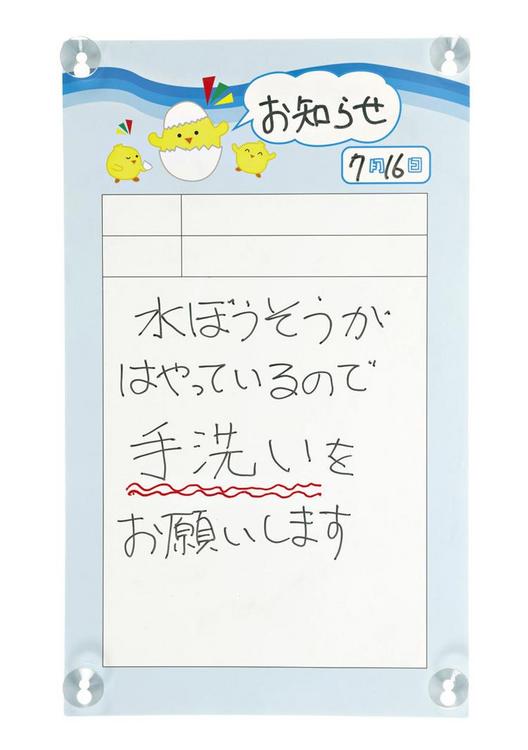 お知らせ
7月16日
水ぼうそうが
はやっているので
手洗いを
お願いします